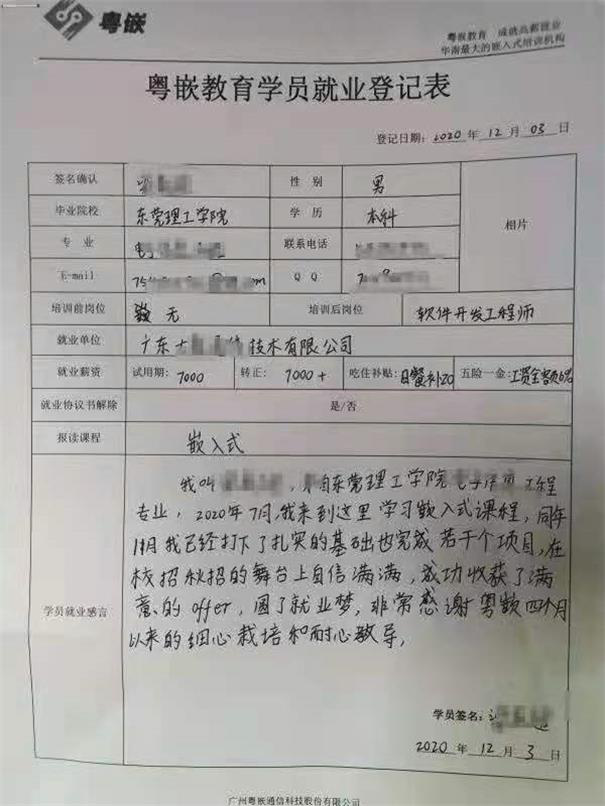 粤嵌
粤嵌教育 成就高薪就业
华南最大的嵌入式培训机构
粤嵌教育学员就业登记表
登记日期：2020 年 12 月 03 日
签名确认 性 别 男
毕业院校 东莞理工学院 学 历 本科
相片
专 业 联系电话
E-mail Q Q
培训前岗位 无 培训后岗位 软件开发工程师
就业单位 广东 技术有限公司
就业薪资 试用期：7000 转正：7000+ 吃住补贴：日餐补20 五险一金：工资全额6%
就业协议书解除 是/否
报读课程 嵌入式
学员就业感言
我叫 ，来自东莞理工学院 工程
专业，2020年7月,我来到这里学习嵌入式课程，同年
11月我已经打下了扎实的基础也完成若干个项目,在
校招秋招的舞台上自信满满，成功收获了满
意的offer，圆了就业梦，非常感谢粤嵌四个月
以来的细心栽培和耐心教导，
学员签名：
2020 年 12 月 3 日
广州粤嵌通信科技股份有限公司